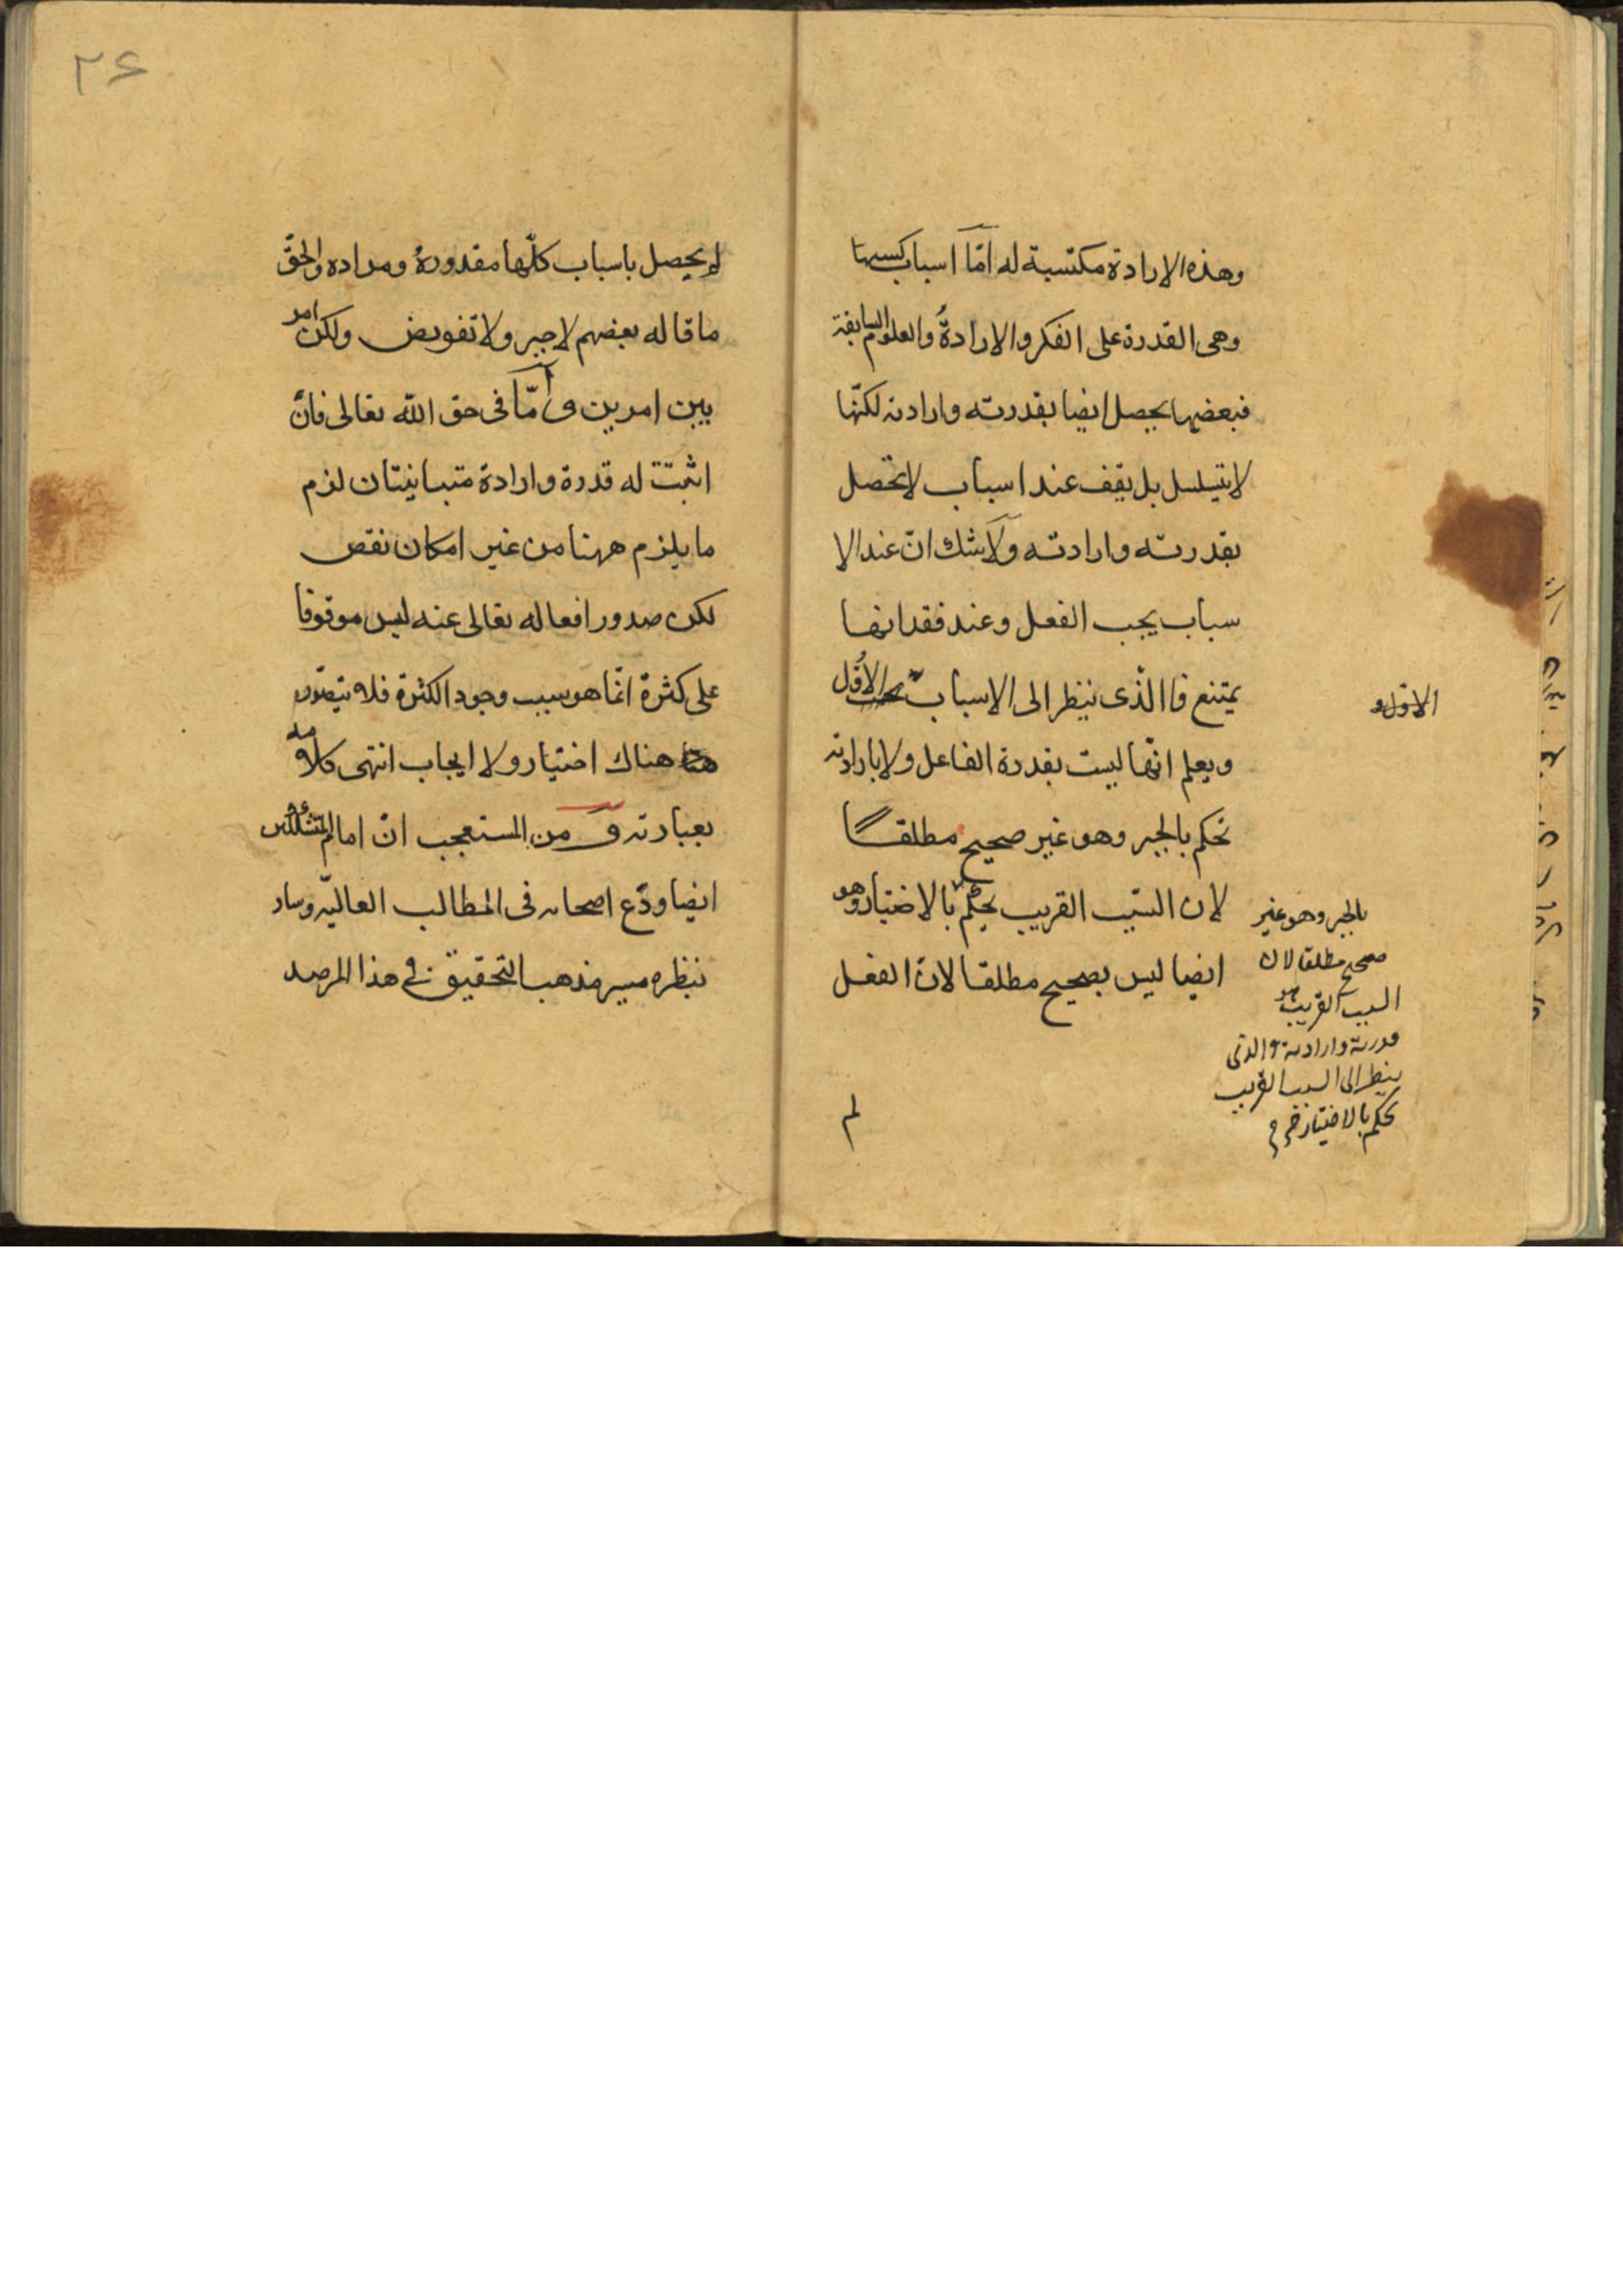 وهذه الارادة مكتسبة له امّا اسباب كسبها
وهى القدرة على الفكر والارادة والعلوم السابقة
فبعضها يحصل ايضا بقدرته وارادته لكنّها
لا يتسلسل بل يقف عند اسباب لا تحصل
بقدرته وارادته ولا شك انّ عند الا
سباب يجب الفعل وعند فقدانها
يمتنع فاالذى ينظر الى الاسباب الاُوَل
ويعلم انّها ليست بقدرة الفاعل ولا بارادته
يحكم بالجبر وهو غير صحيح مطلقا
لان السّبب القريب يحكم بالاختيار وهو
ايضا ليس بصحيح مطلقا لانّ الفعل
لم
الاول و
بالجبر وهو غير
صحيح مطلقا لان
السبب القريب هو
قدرته وارادته والذى
ينظر الى السبب القريب
يحكم بالاختيار
۲۶
لم يحصل باسباب كلّها مقدورة ومرادة والحقّ
ما قاله بعضهم لا جبر ولا تفويض ولكن امر
بين امرين وامّا فى حق اللّه تعالى فانّ
اثبتت له قدرة وارادة متباينتان لزم
ما يلزم ههنا من غير امكان نقص
لكن صدور افعاله تعالى عنه ليس موقوفا
على كثرة انّما هو سبب وجود الكثرة فلا يتصوّر
هناك اختيار ولا ايجاب انتهى كلامه
بعبارته ومن المستعجب انّ امامالمتشككين
ايضا ودّع اصحابه فى المطالب العاليّه وسار
بنظره مسير مذهب التحقيق فى هذا المرصد